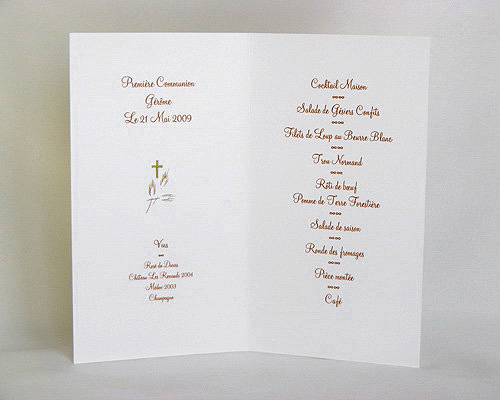 Première Communion
Gérôme
Le 21 Mai 2009
Vins
Rosé de
Château Les 2004
Médoc 2003
Champagne
Cocktail Maison
Salade de Gésiers Confits
Filets de Loup au Beurre Blanc
Trou Normand
Rôti de bœuf
Pomme de Terre Forestière
Salade de saison
Ronde des fromages
Pièce montée
Café